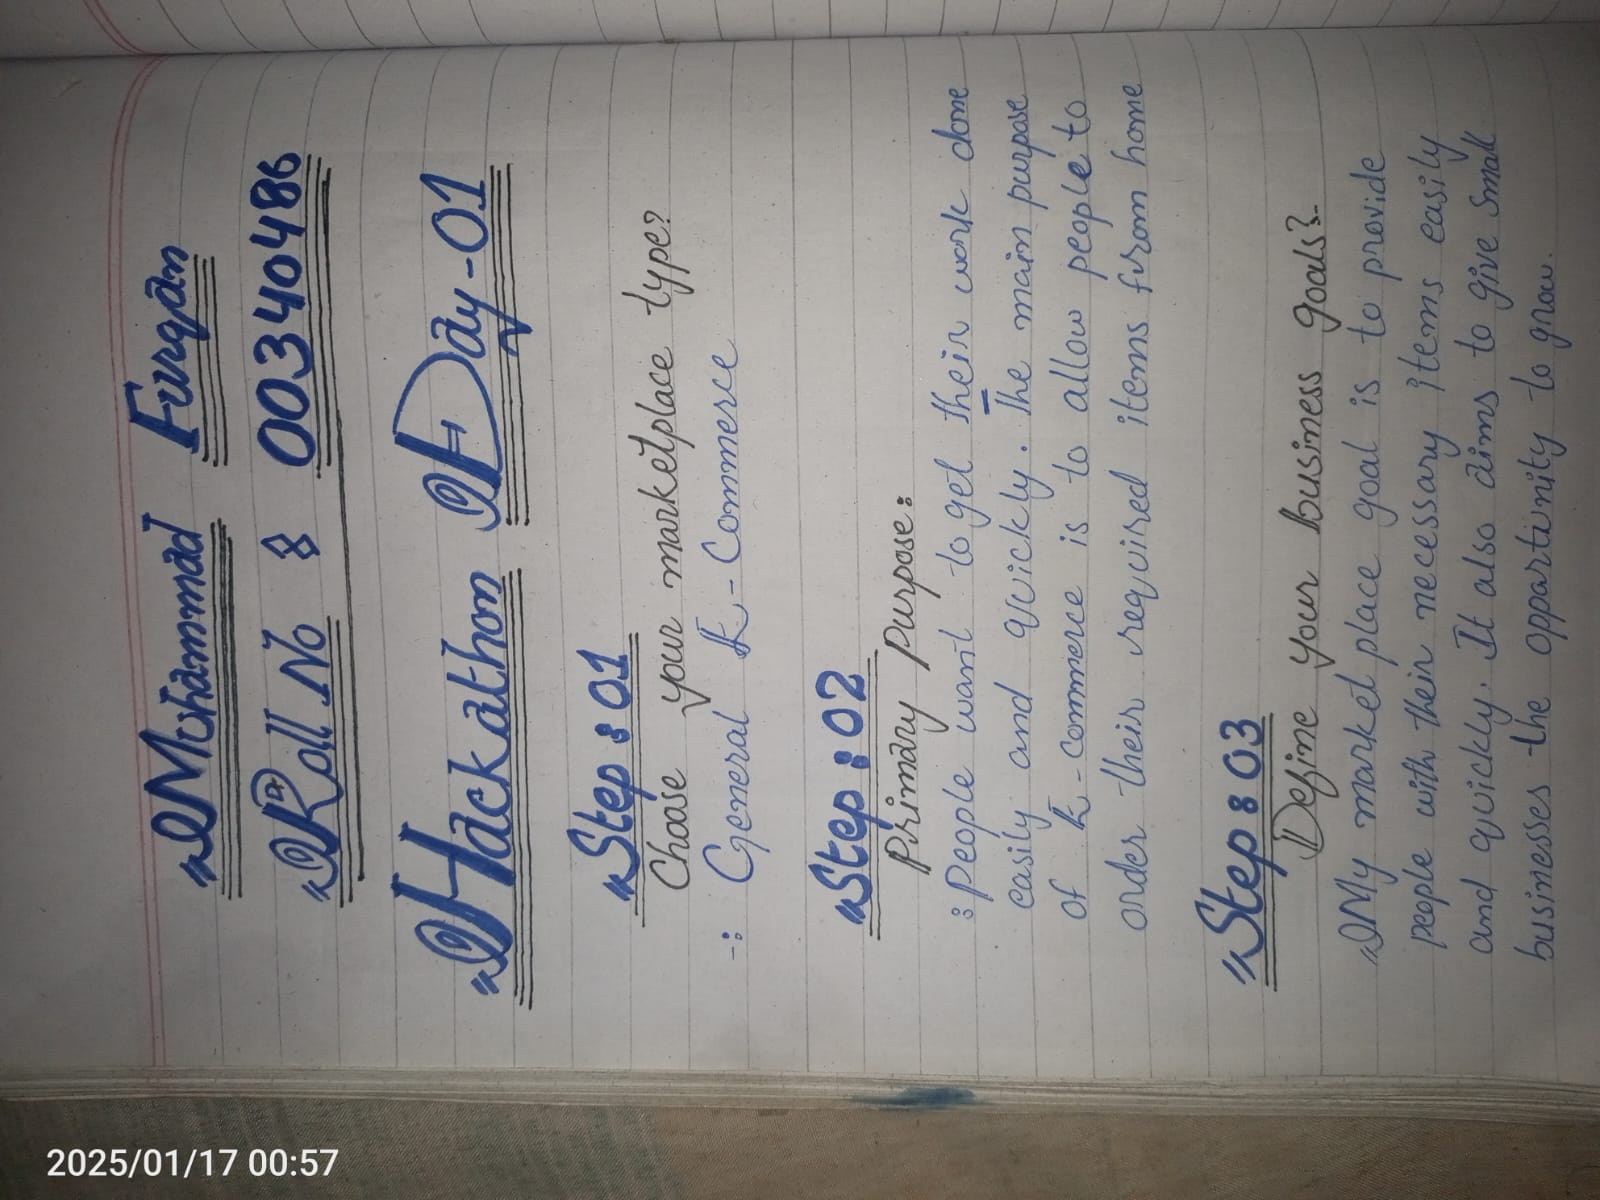 "Muhammad Furqan
"Roll No : 00340486
"Hackathon Day-01
"Step : 01
Choose your marketplace type?
-: General E-Commerce
"Step : 02
Primary Purpose:
: People want to get their work done
easily and quickly. The main purpose
of E-commerce is to allow people to
order their required items from home
"Step : 03
Define your business goals?
"My market place goal is to provide
people with their necessary items easily
and quickly. It also aims to give small
businesses the oppartunity to grow.
2025/01/17 00:57